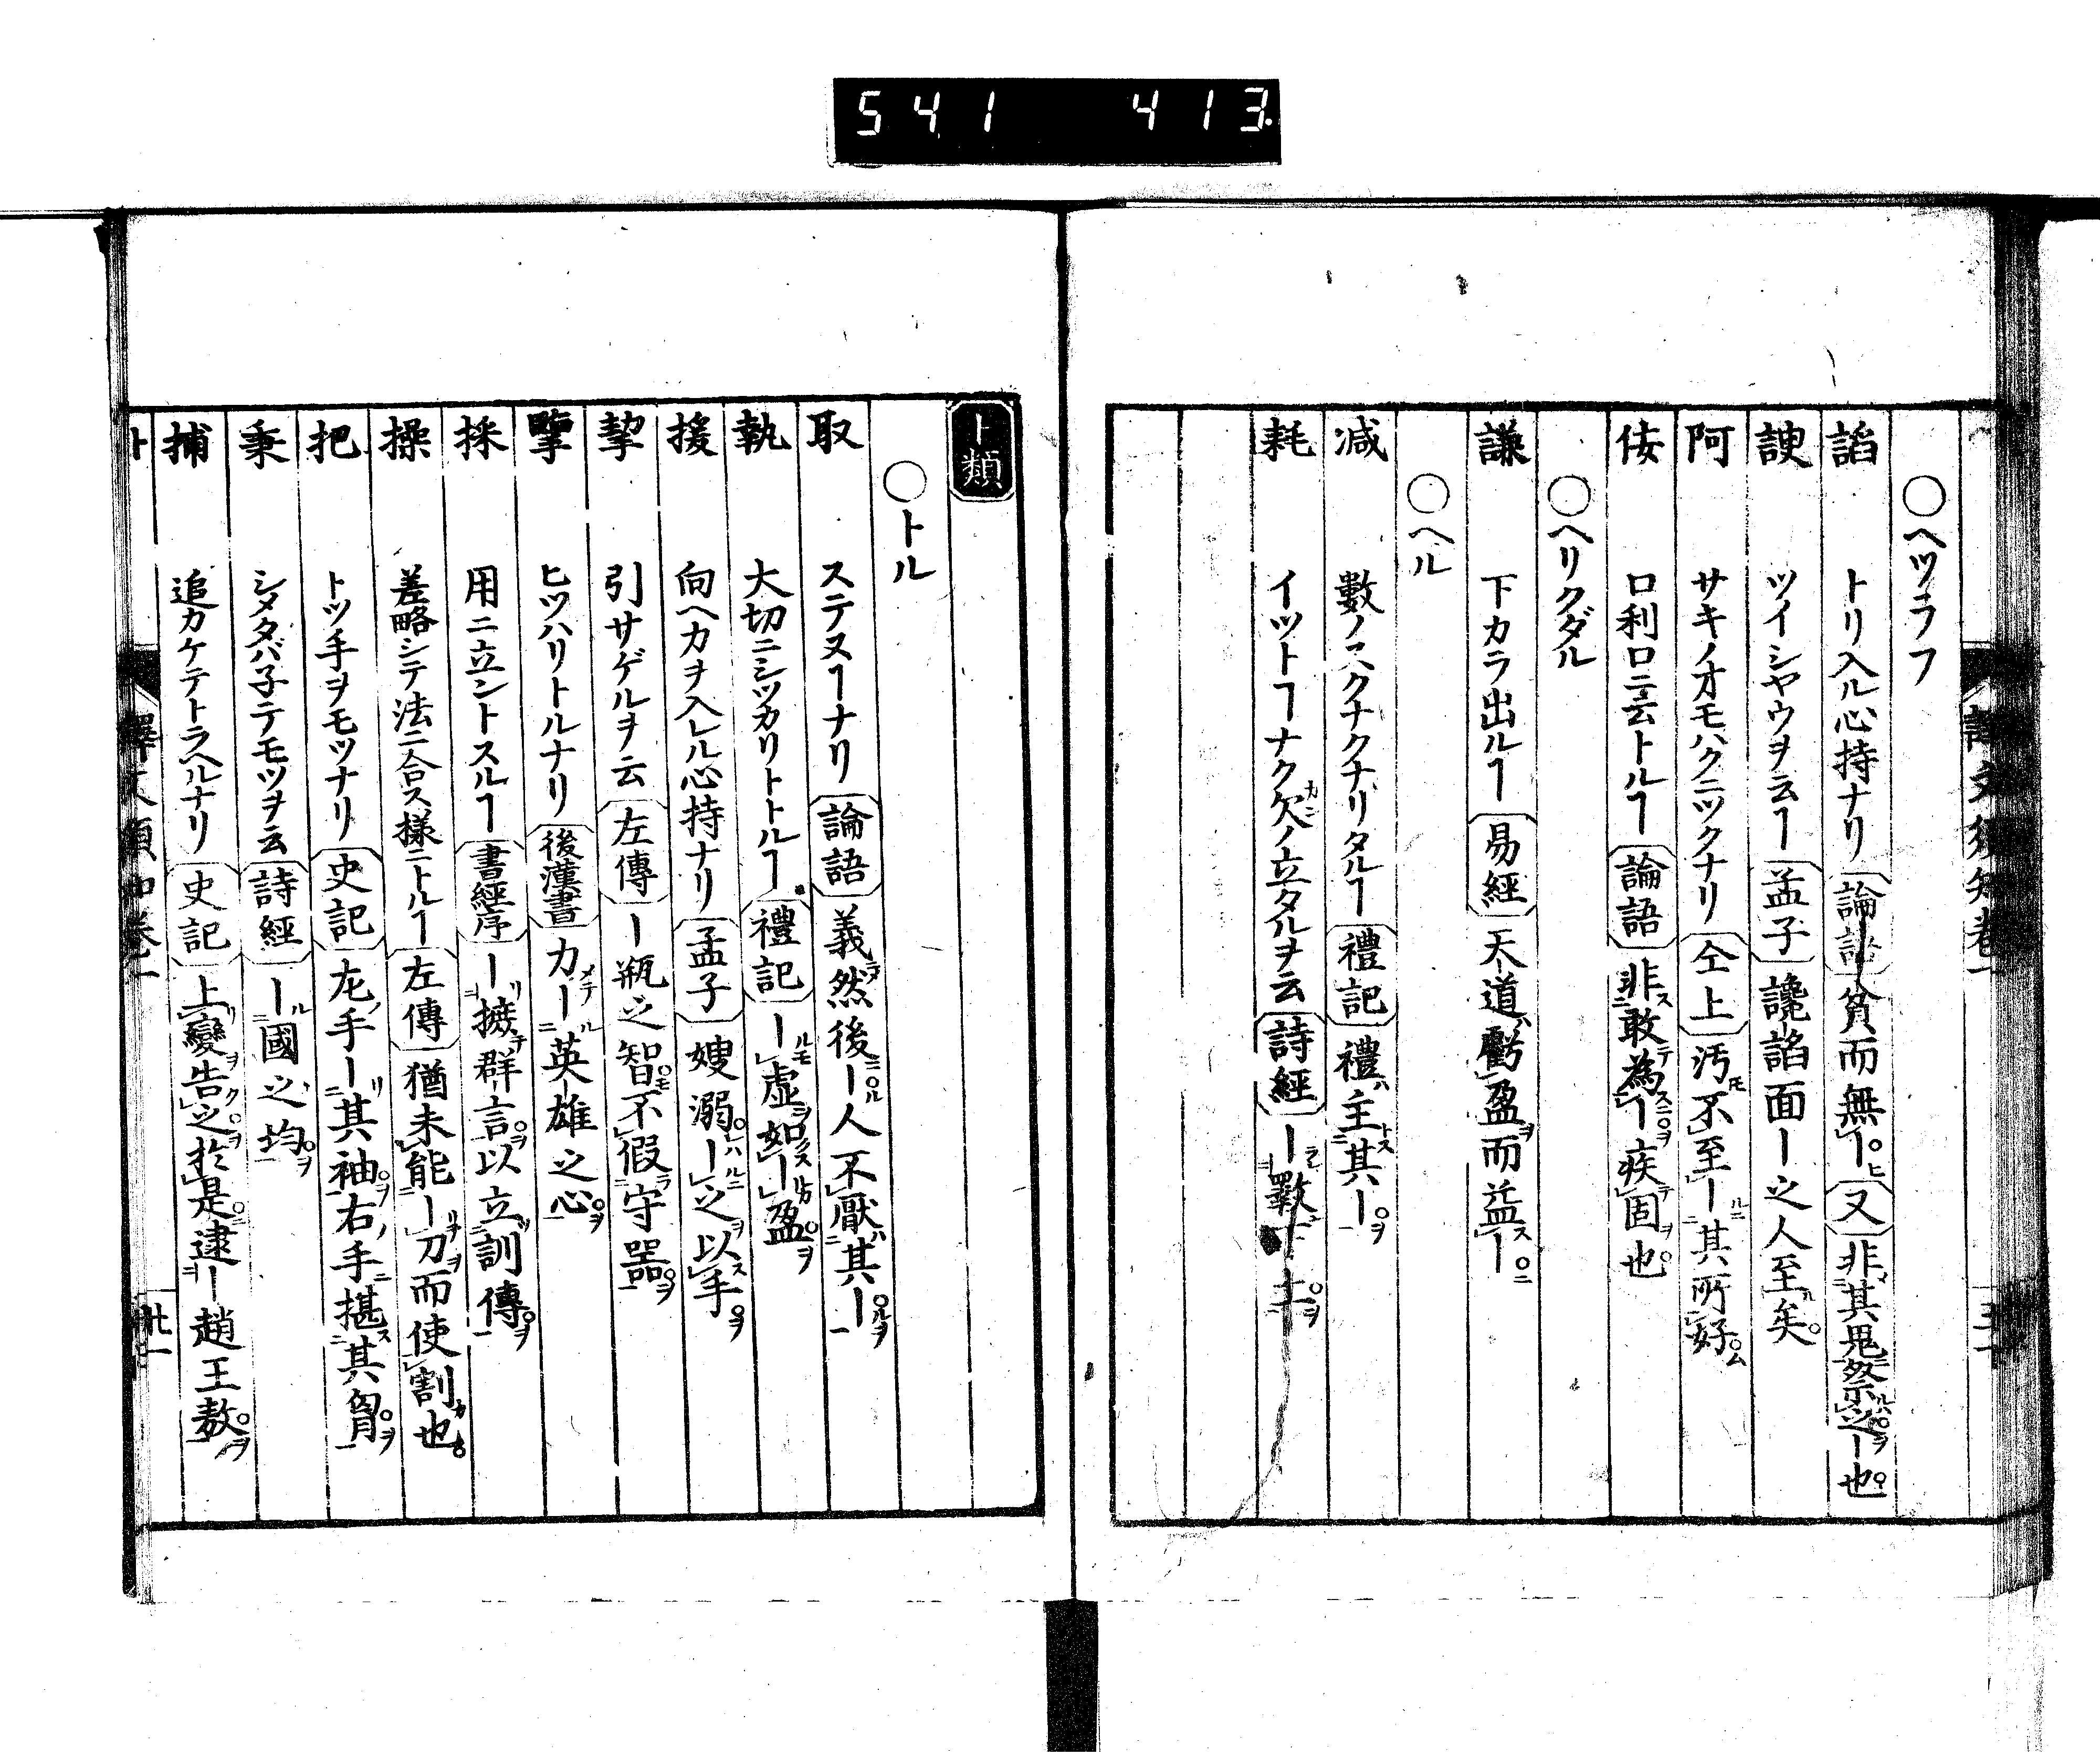 541 413
○ヘツラフ
諂 トリ入ル心持ナリ 論語 貧而無ー 又 非其鬼祭之ー也
諛 ツイシヤウヲ云ヿ 孟子 讒諂面ー之人至矣
阿 サキノオモハクニツクナリ 仝上 汚不至ー其所好
佞 口利口ニ云トルヿ 論語 非敢為ー疾固也
○ヘリクダル
謙 下カラ出ルヿ 易經 天道虧盈而益ー
○ヘル
減 數ノスクナクナリタルヿ 禮記 禮主其ー
耗 イツトヿナク欠ノ立タルヲ云 詩經 ー斁下土
ト類
○トル
取 ステヌヿナリ 論語 義然後ー人不厭其ー
執 大切ニシツカリトトルヿ 禮記 ー虚如ー盈
援 向ヘカヲ入レル心持ナリ 孟子 嫂溺ー之以手
挈 引サゲルヲ云 左傳 ー瓶之智不假守器
擥 ヒツハリトルナリ 後漢書 力ー英雄之心
採 用ニ立ントスルヿ 書經序 ー摭群言以立訓傳
操 差略シテ法ニ合ス様ニトルヿ 左傳 猶未能ー刀而使割也
把 トツ手ヲモツナリ 史記 左手ー其袖右手揕其胷
秉 シタタバ子テモツヲ云 詩經 ー國之均
捕 追カケテトラヘルナリ 史記 上變告之於是逮ー趙王敖
譯文須知卷一